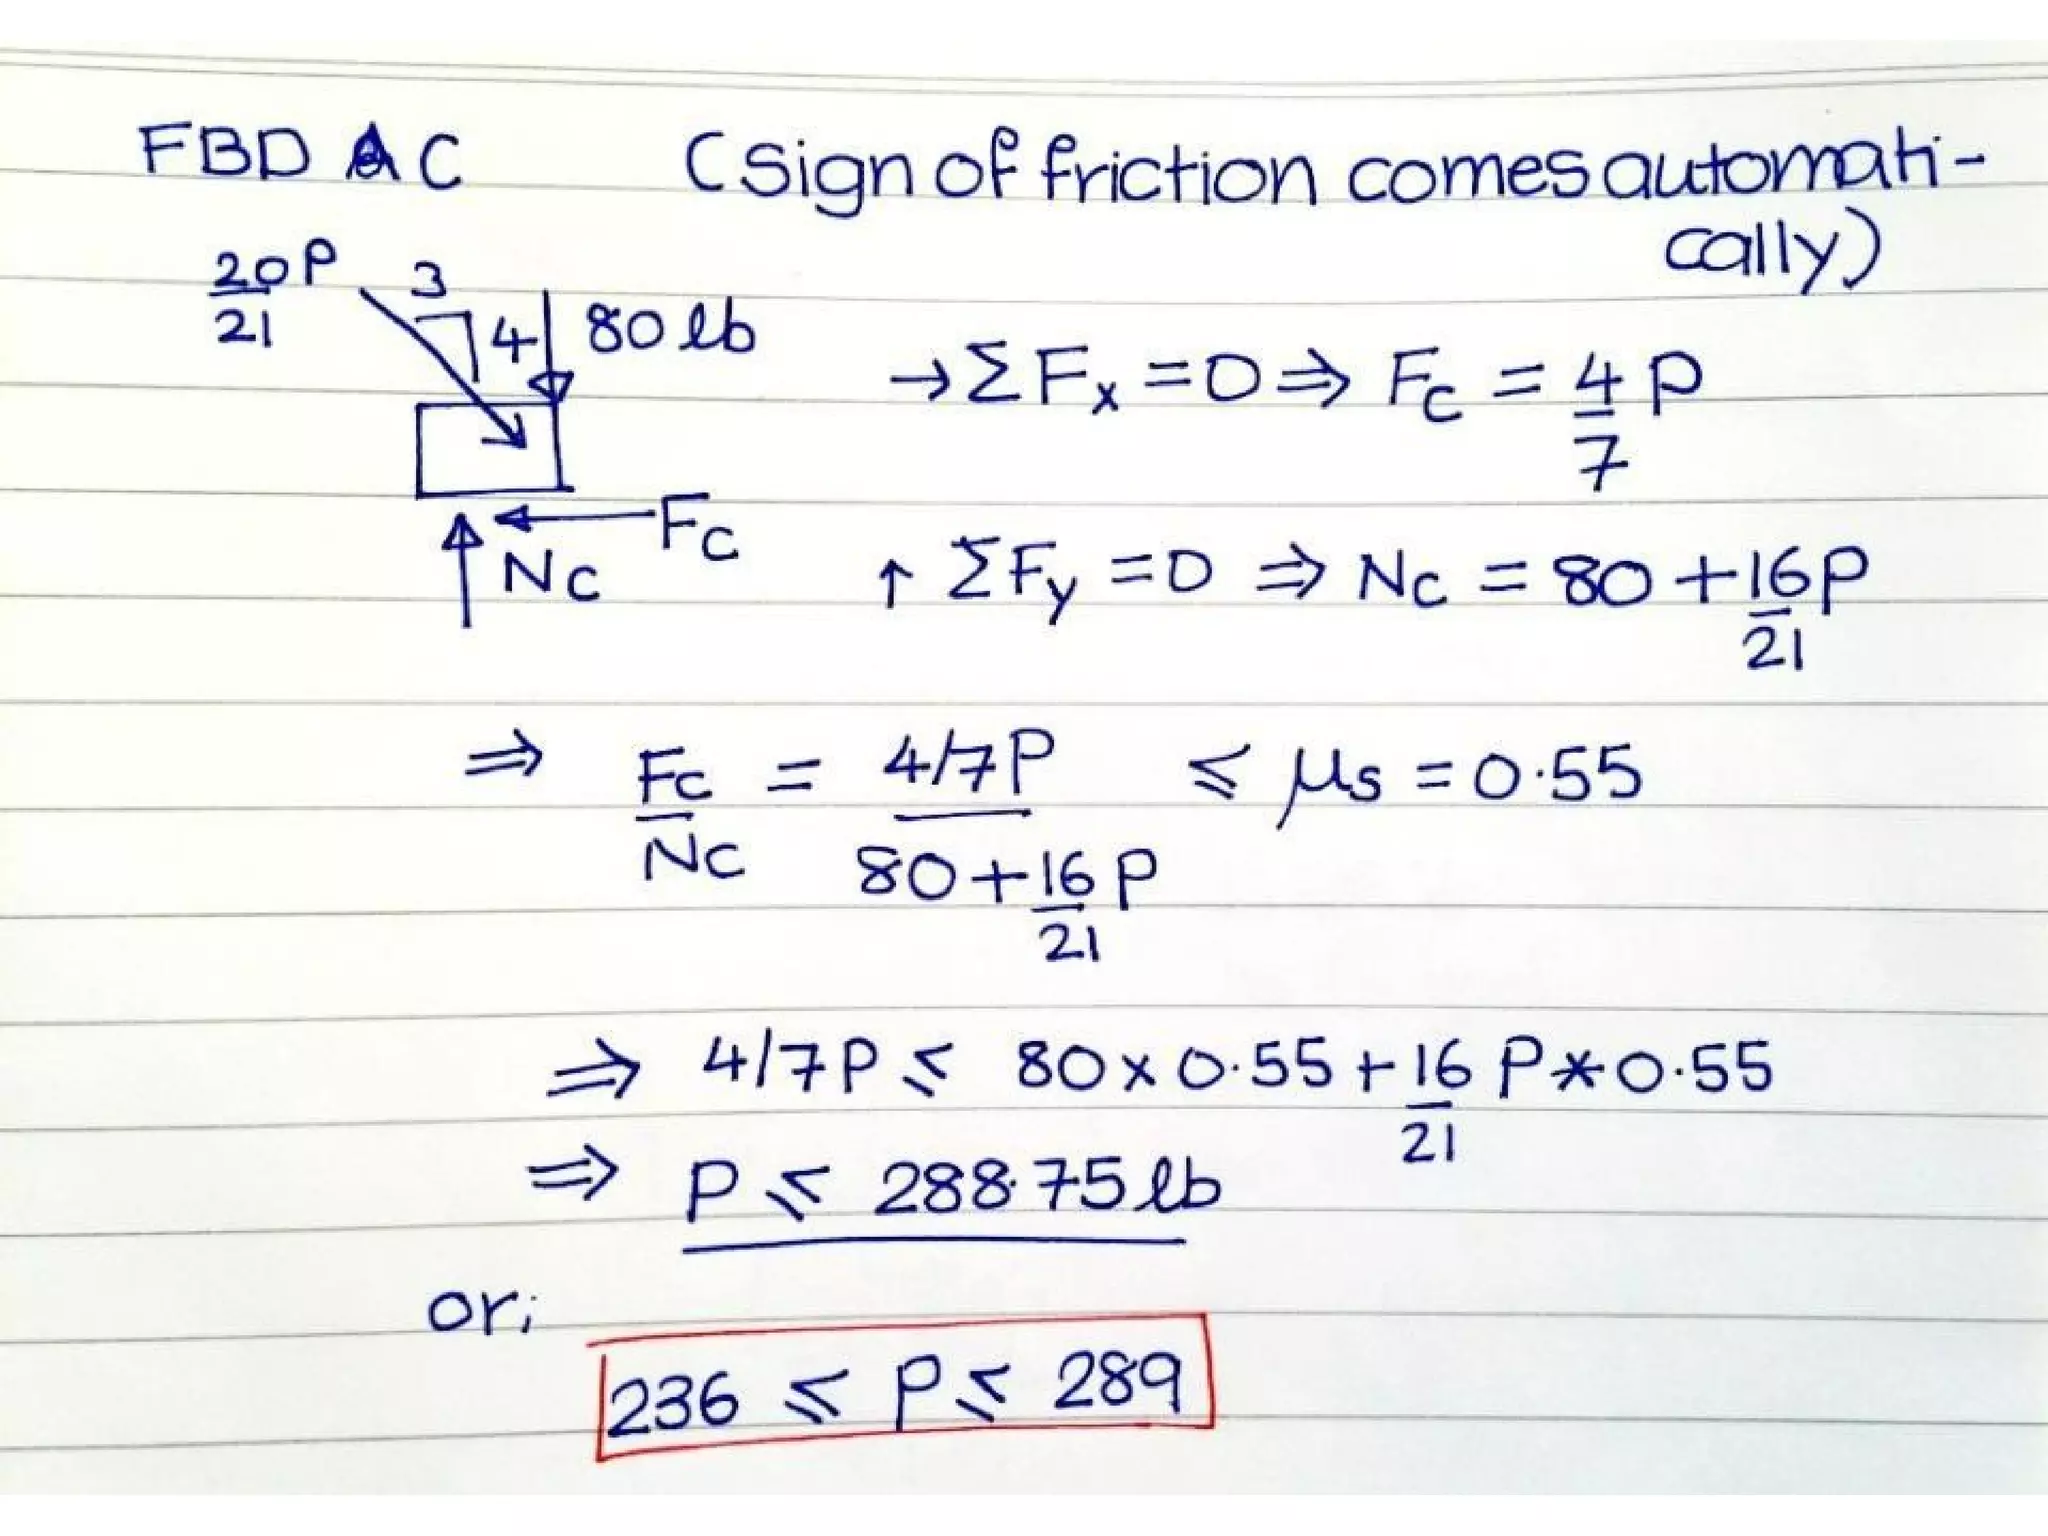 FBD C (sign of friction comes automati-
cally)
20P/21 3 4 80 lb
→ΣFx = 0 ⇒ Fc = 4/7 P
Nc Fc
↑ ΣFy = 0 ⇒ Nc = 80 + 16/21 P
⇒ Fc/Nc = (4/7P)/(80 + 16/21 P) ≤ μs = 0.55
⇒ 4/7P ≤ 80 x 0.55 + 16/21 P * 0.55
⇒ P ≤ 288.75 lb
or;
236 ≤ P ≤ 289